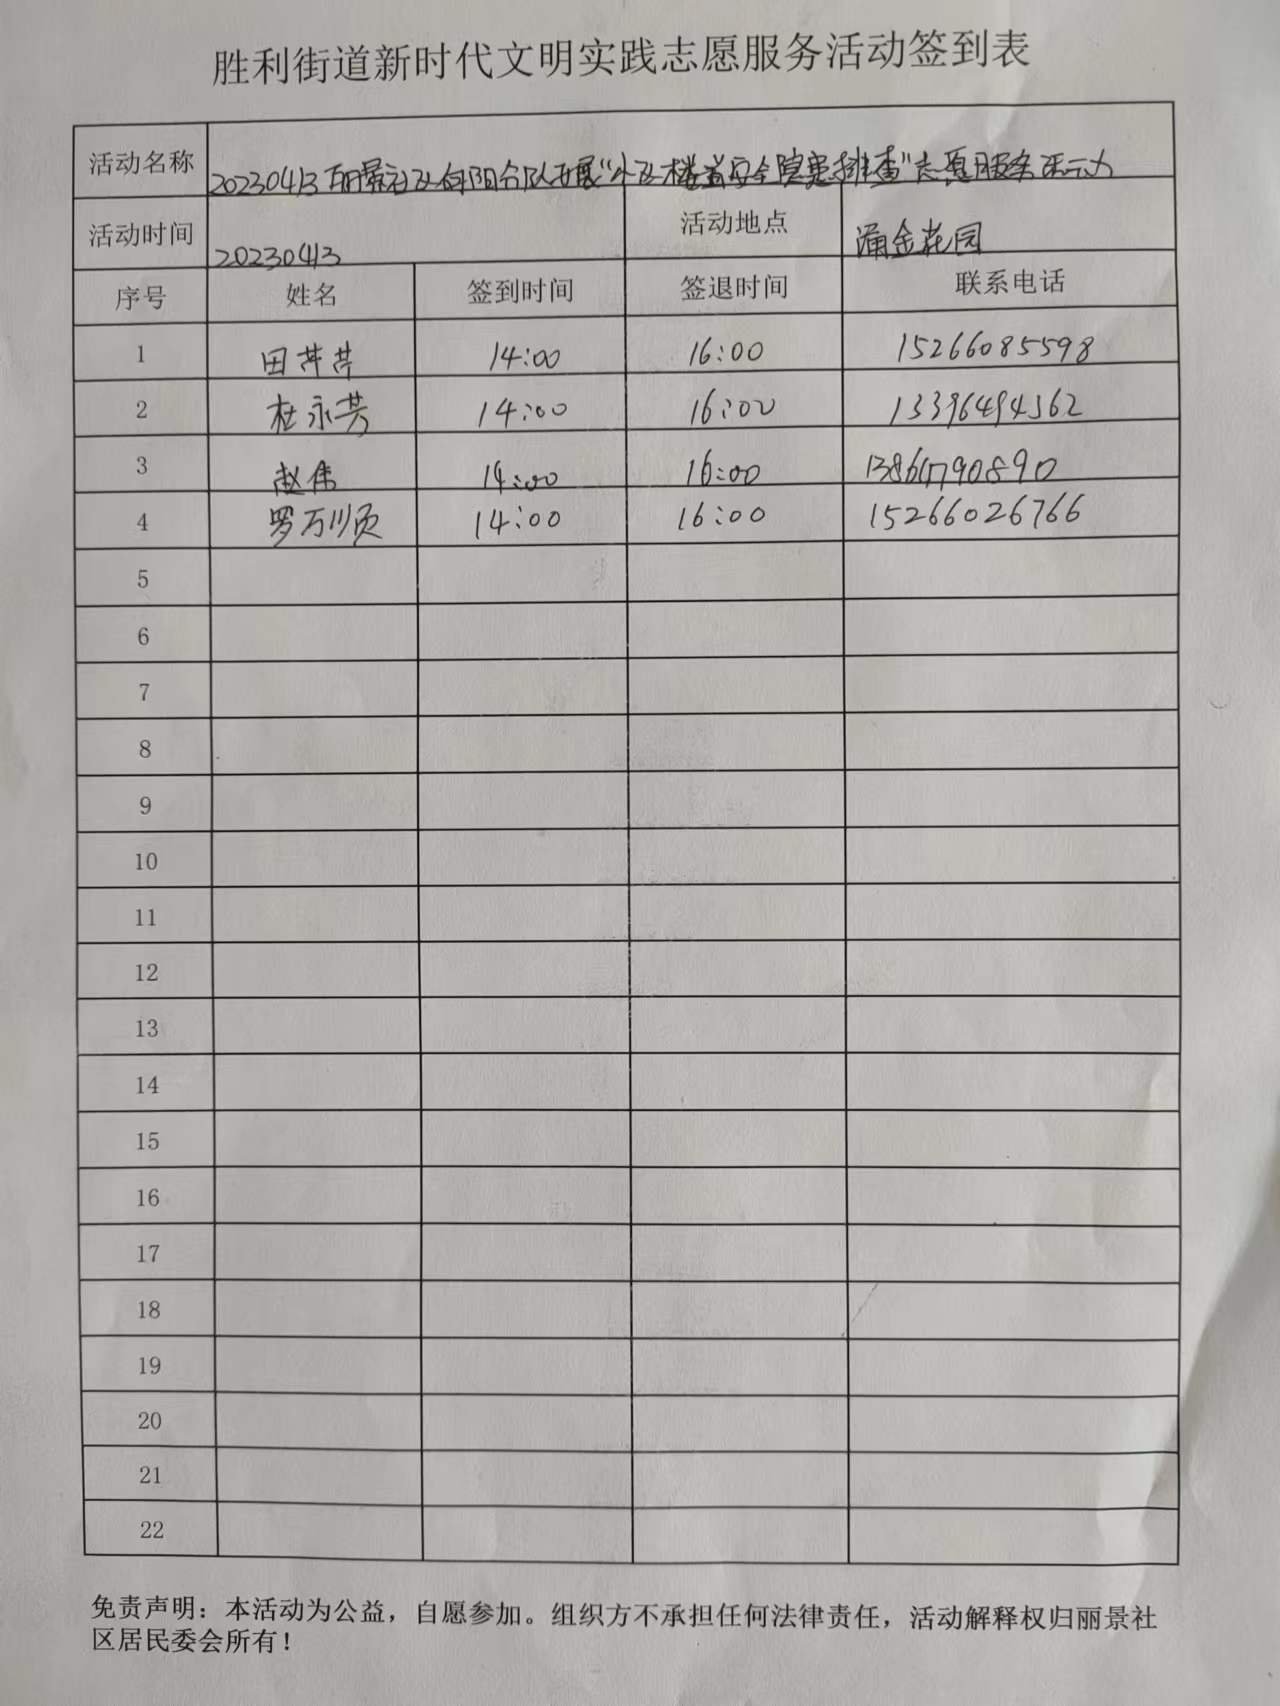 胜利街道新时代文明实践志愿服务活动签到表
活动名称 20230413丽景社区向阳分队开展“小区楼道安全隐患排查”志愿服务活动
活动时间 20230413 活动地点 涌金花园
序号 姓名 签到时间 签退时间 联系电话
1 田芹芹 14:00 16:00 15266085598
2 杜永芳 14:00 16:00 13396494362
3 赵伟 14:00 16:00
4 罗万顺 14:00 16:00 15266026766
5
6
7
8
9
10
11
12
13
14
15
16
17
18
19
20
21
22
免责声明：本活动为公益，自愿参加。组织方不承担任何法律责任，活动解释权归丽景社
区居民委会所有！